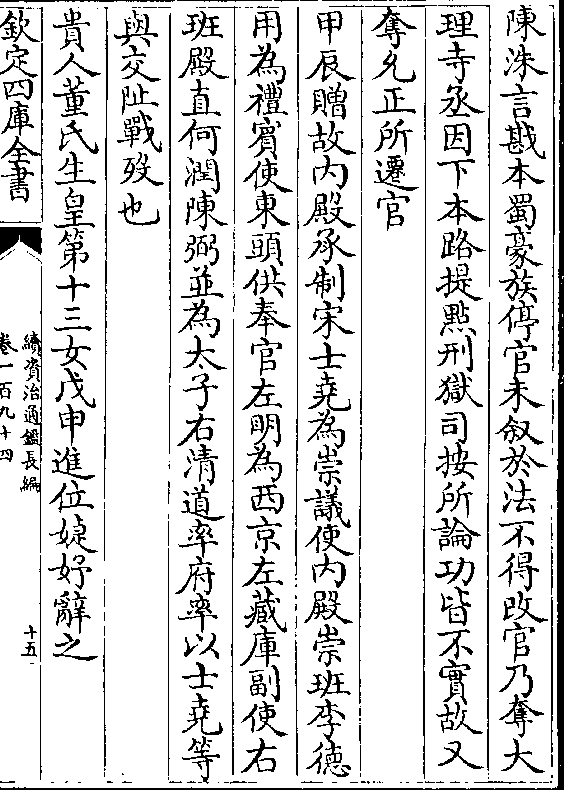 陳洙言戡本蜀豪族停官未叙於法不得改官乃奪大
理寺丞因下本路提點刑獄司按所論功皆不實故又
奪允正所遷官
甲辰贈故内殿承制宋士堯為崇議使内殿崇班李德
用為禮賓使東頭供奉官左明為西京左藏庫副使右
班殿直何潤陳弼並為太子右清道率府率以士堯等
與交阯戰殁也
貴人董氏生皇第十三女戊申進位婕妤辭之
欽定四庫全書
續資治通鑑長編
卷一百九十四
十五